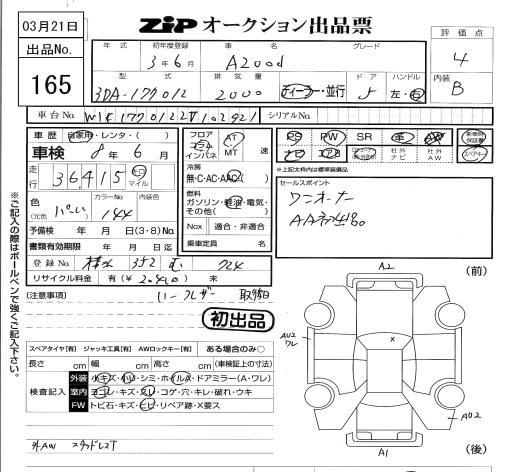 03月21日
出品No.
165
ZIP オークション出品票
年式 初年度登録 車名 グレード
3年6月 A200d
型式 排気量 ドア ハンドル
3DA-177012 2000 ディーラー・並行 5 左・右
評価点
4
内装
B
車台No. W1K1770122J102921 シリアルNo.
車歴 自家用・レンタ・( )
車検 8年6月
走行 36,415 キロ マイル
色 (元色) カラーNo. 144 内装色
予備検 年 月 日(3・8)No.
書類有効期限 年 月 日迄
登録No. 352 む 724
リサイクル料金 有(¥ ) 未
フロア コラム インパネ AT MT 速
冷房 無・C・AC・AAC
燃料 ガソリン・軽油・電気・その他( )
Nox 適合・非適合
乗車定員 名
PS PW SR 革 AW
ナビ 社外ナビ 社外AW
※上記太枠内は標準装備品
セールスポイント
ワンオーナー
(注意事項)
初出品
スペアタイヤ[有] ジャッキ工具[有] AWロックキー[有] ある場合のみ○
長さ cm 幅 cm 高さ cm (車検証上の寸法)
検査記入
外装 小キズ・小凹・シミ・ホイルA・ドアミラー(A・ワレ)
室内 ヨゴレ・キズ・スレ・コゲ・穴・キレ・破れ・ウキ
FW トビ石・キズ・ヒビ・リペア跡・X要ス
外AW スタッドレスT
※ご記入の際はボールペンで強くご記入下さい。
(前)
A2
AU2
ワレ
x
AU2
A1
(後)